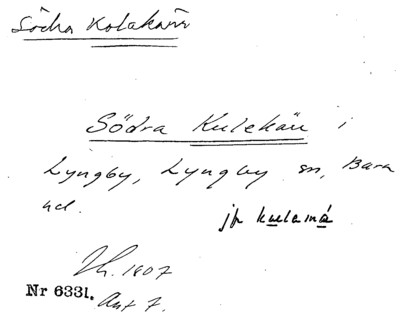 Södra Kolakärr
Södra Kulekär i
Lyngby, Lyngby sn, Bara
hd.
jfr kulamå
1807
Nr 6331.
Akt 7.